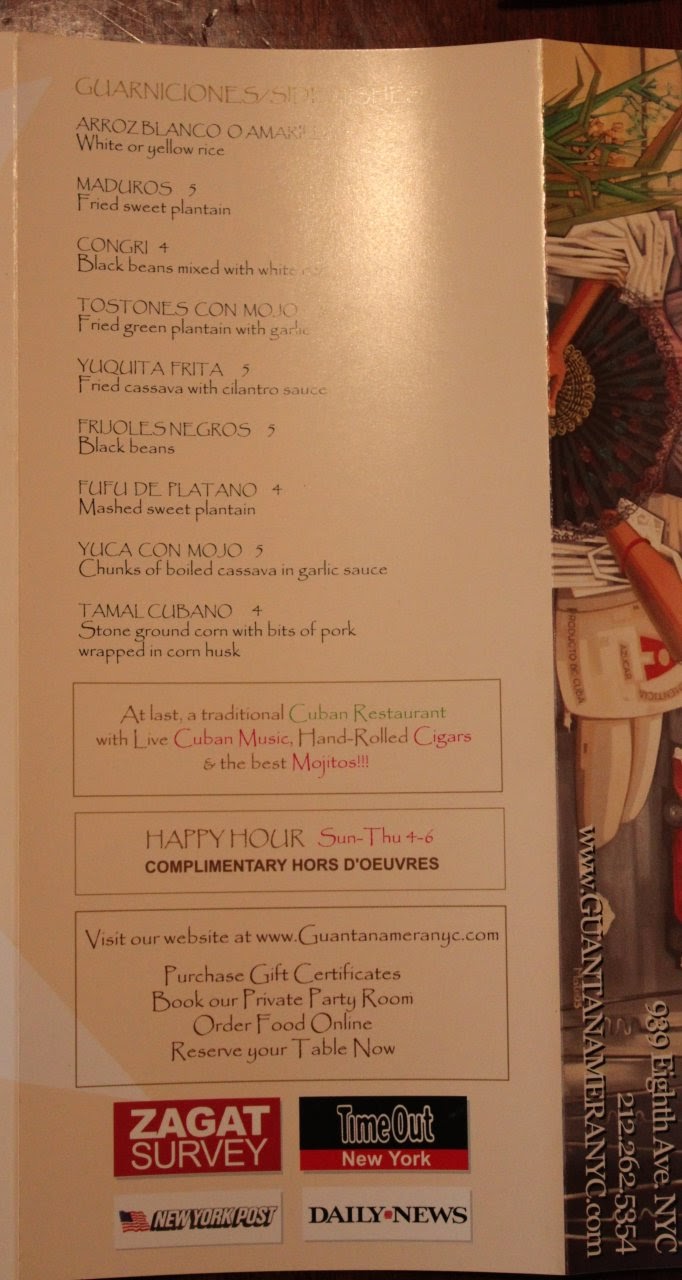 GUARNICIONES/SIDE DISHES
ARROZ BLANCO O AMARILLO
White or yellow rice
MADUROS 5
Fried sweet plantain
CONGRI 4
Black beans mixed with white rice
TOSTONES CON MOJO
Fried green plantain with garlic
YUQUITA FRITA 5
Fried cassava with cilantro sauce
FRIJOLES NEGROS 5
Black beans
FUFU DE PLATANO 4
Mashed sweet plantain
YUCA CON MOJO 5
Chunks of boiled cassava in garlic sauce
TAMAL CUBANO 4
Stone ground corn with bits of pork
wrapped in corn husk
At last, a traditional Cuban Restaurant
with Live Cuban Music, Hand-Rolled Cigars
& the best Mojitos!!!
HAPPY HOUR Sun-Thu 4-6
COMPLIMENTARY HORS D'OEUVRES
Visit our website at www.Guantanameranyc.com
Purchase Gift Certificates
Book our Private Party Room
Order Food Online
Reserve your Table Now
ZAGAT
SURVEY
TimeOut
New York
NEW YORK POST
DAILY NEWS
PRODUCTO DE CUBA
AZUCAR
939 Eighth Ave. NYC
212.262.5354
www.GUANTANAMERANYC.com